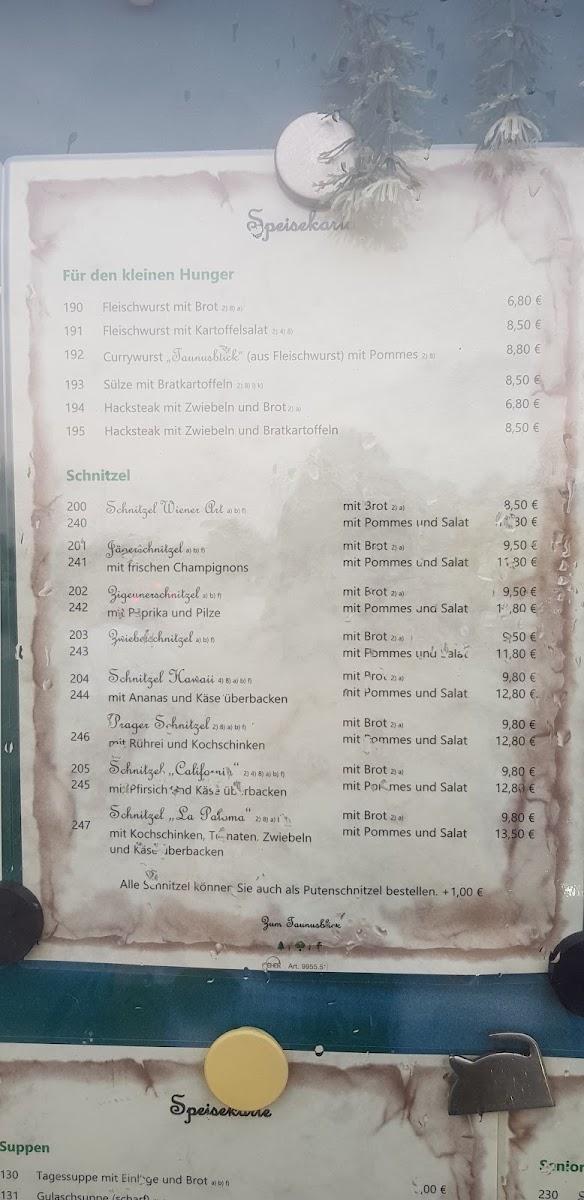 Speisekarte
Für den kleinen Hunger
190 Fleischwurst mit Brot 2) 8) a) 6,80 €
191 Fleischwurst mit Kartoffelsalat 2) 4) 8) 8,50 €
192 Currywurst „Taunusblick" (aus Fleischwurst) mit Pommes 2) 8) 8,80 €
193 Sülze mit Bratkartoffeln 8,50 €
194 Hacksteak mit Zwiebeln und Brot 2) a) 6,80 €
195 Hacksteak mit Zwiebeln und Bratkartoffeln 8,50 €
Schnitzel
200 Schnitzel Wiener Art a) b) f) mit Brot 2) a) 8,50 €
240 mit Pommes und Salat
201 Jägerschnitzel a) b) f) mit Brot 2) a) 9,50 €
241 mit frischen Champignons mit Pommes und Salat 11,80 €
202 Zigeunerschnitzel a) b) f) mit Brot 2) a) 9,50 €
242 mit Paprika und Pilze mit Pommes und Salat 11,80 €
203 Zwiebelschnitzel a) b) f) mit Brot 2) a) 9,50 €
243 mit Pommes und Salat 11,80 €
204 Schnitzel Hawaii 4) 8) a) b) f) mit Brot 2) a) 9,80 €
244 mit Ananas und Käse überbacken mit Pommes und Salat 12,80 €
Prager Schnitzel 2) 8) a) b) f) mit Brot 2) a) 9,80 €
246 mit Rührei und Kochschinken mit Pommes und Salat 12,80 €
205 Schnitzel „California" 2) 4) 8) a) b) f) mit Brot 2) a) 9,80 €
245 mit Pfirsich und Käse überbacken mit Pommes und Salat 12,80 €
Schnitzel „La Paloma" 2) 8) a) mit Brot 2) a) 9,80 €
247 mit Kochschinken, Tomaten, Zwiebeln mit Pommes und Salat 13,50 €
und Käse überbacken
Alle Schnitzel können Sie auch als Putenschnitzel bestellen. +1,00 €
Zum Taunusblick
Art. 9955.5
Speisekarte
Suppen
130 Tagessuppe mit Einlage und Brot a) b) f) ,00 €
131 Gulaschsuppe (scharf)
Senior
230